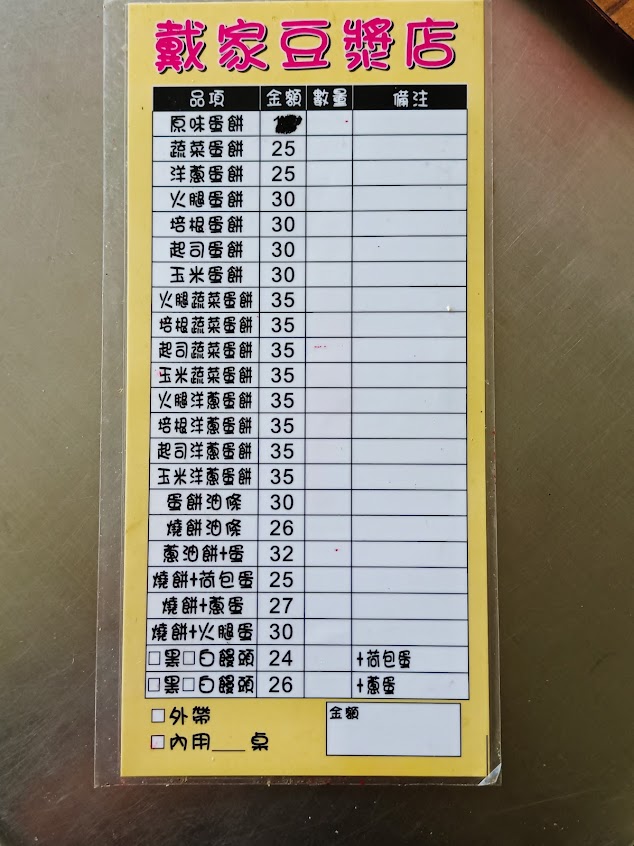 戴家豆漿店
品項 金額 數量 備注
原味蛋餅
蔬菜蛋餅 25
洋蔥蛋餅 25
火腿蛋餅 30
培根蛋餅 30
起司蛋餅 30
玉米蛋餅 30
火腿蔬菜蛋餅 35
培根蔬菜蛋餅 35
起司蔬菜蛋餅 35
玉米蔬菜蛋餅 35
火腿洋蔥蛋餅 35
培根洋蔥蛋餅 35
起司洋蔥蛋餅 35
玉米洋蔥蛋餅 35
蛋餅油條 30
燒餅油條 26
蔥油餅+蛋 32
燒餅+荷包蛋 25
燒餅+蔥蛋 27
燒餅+火腿蛋 30
□黑□白饅頭 24 +荷包蛋
□黑□白饅頭 26 +蔥蛋
□外帶 金額
□內用___桌